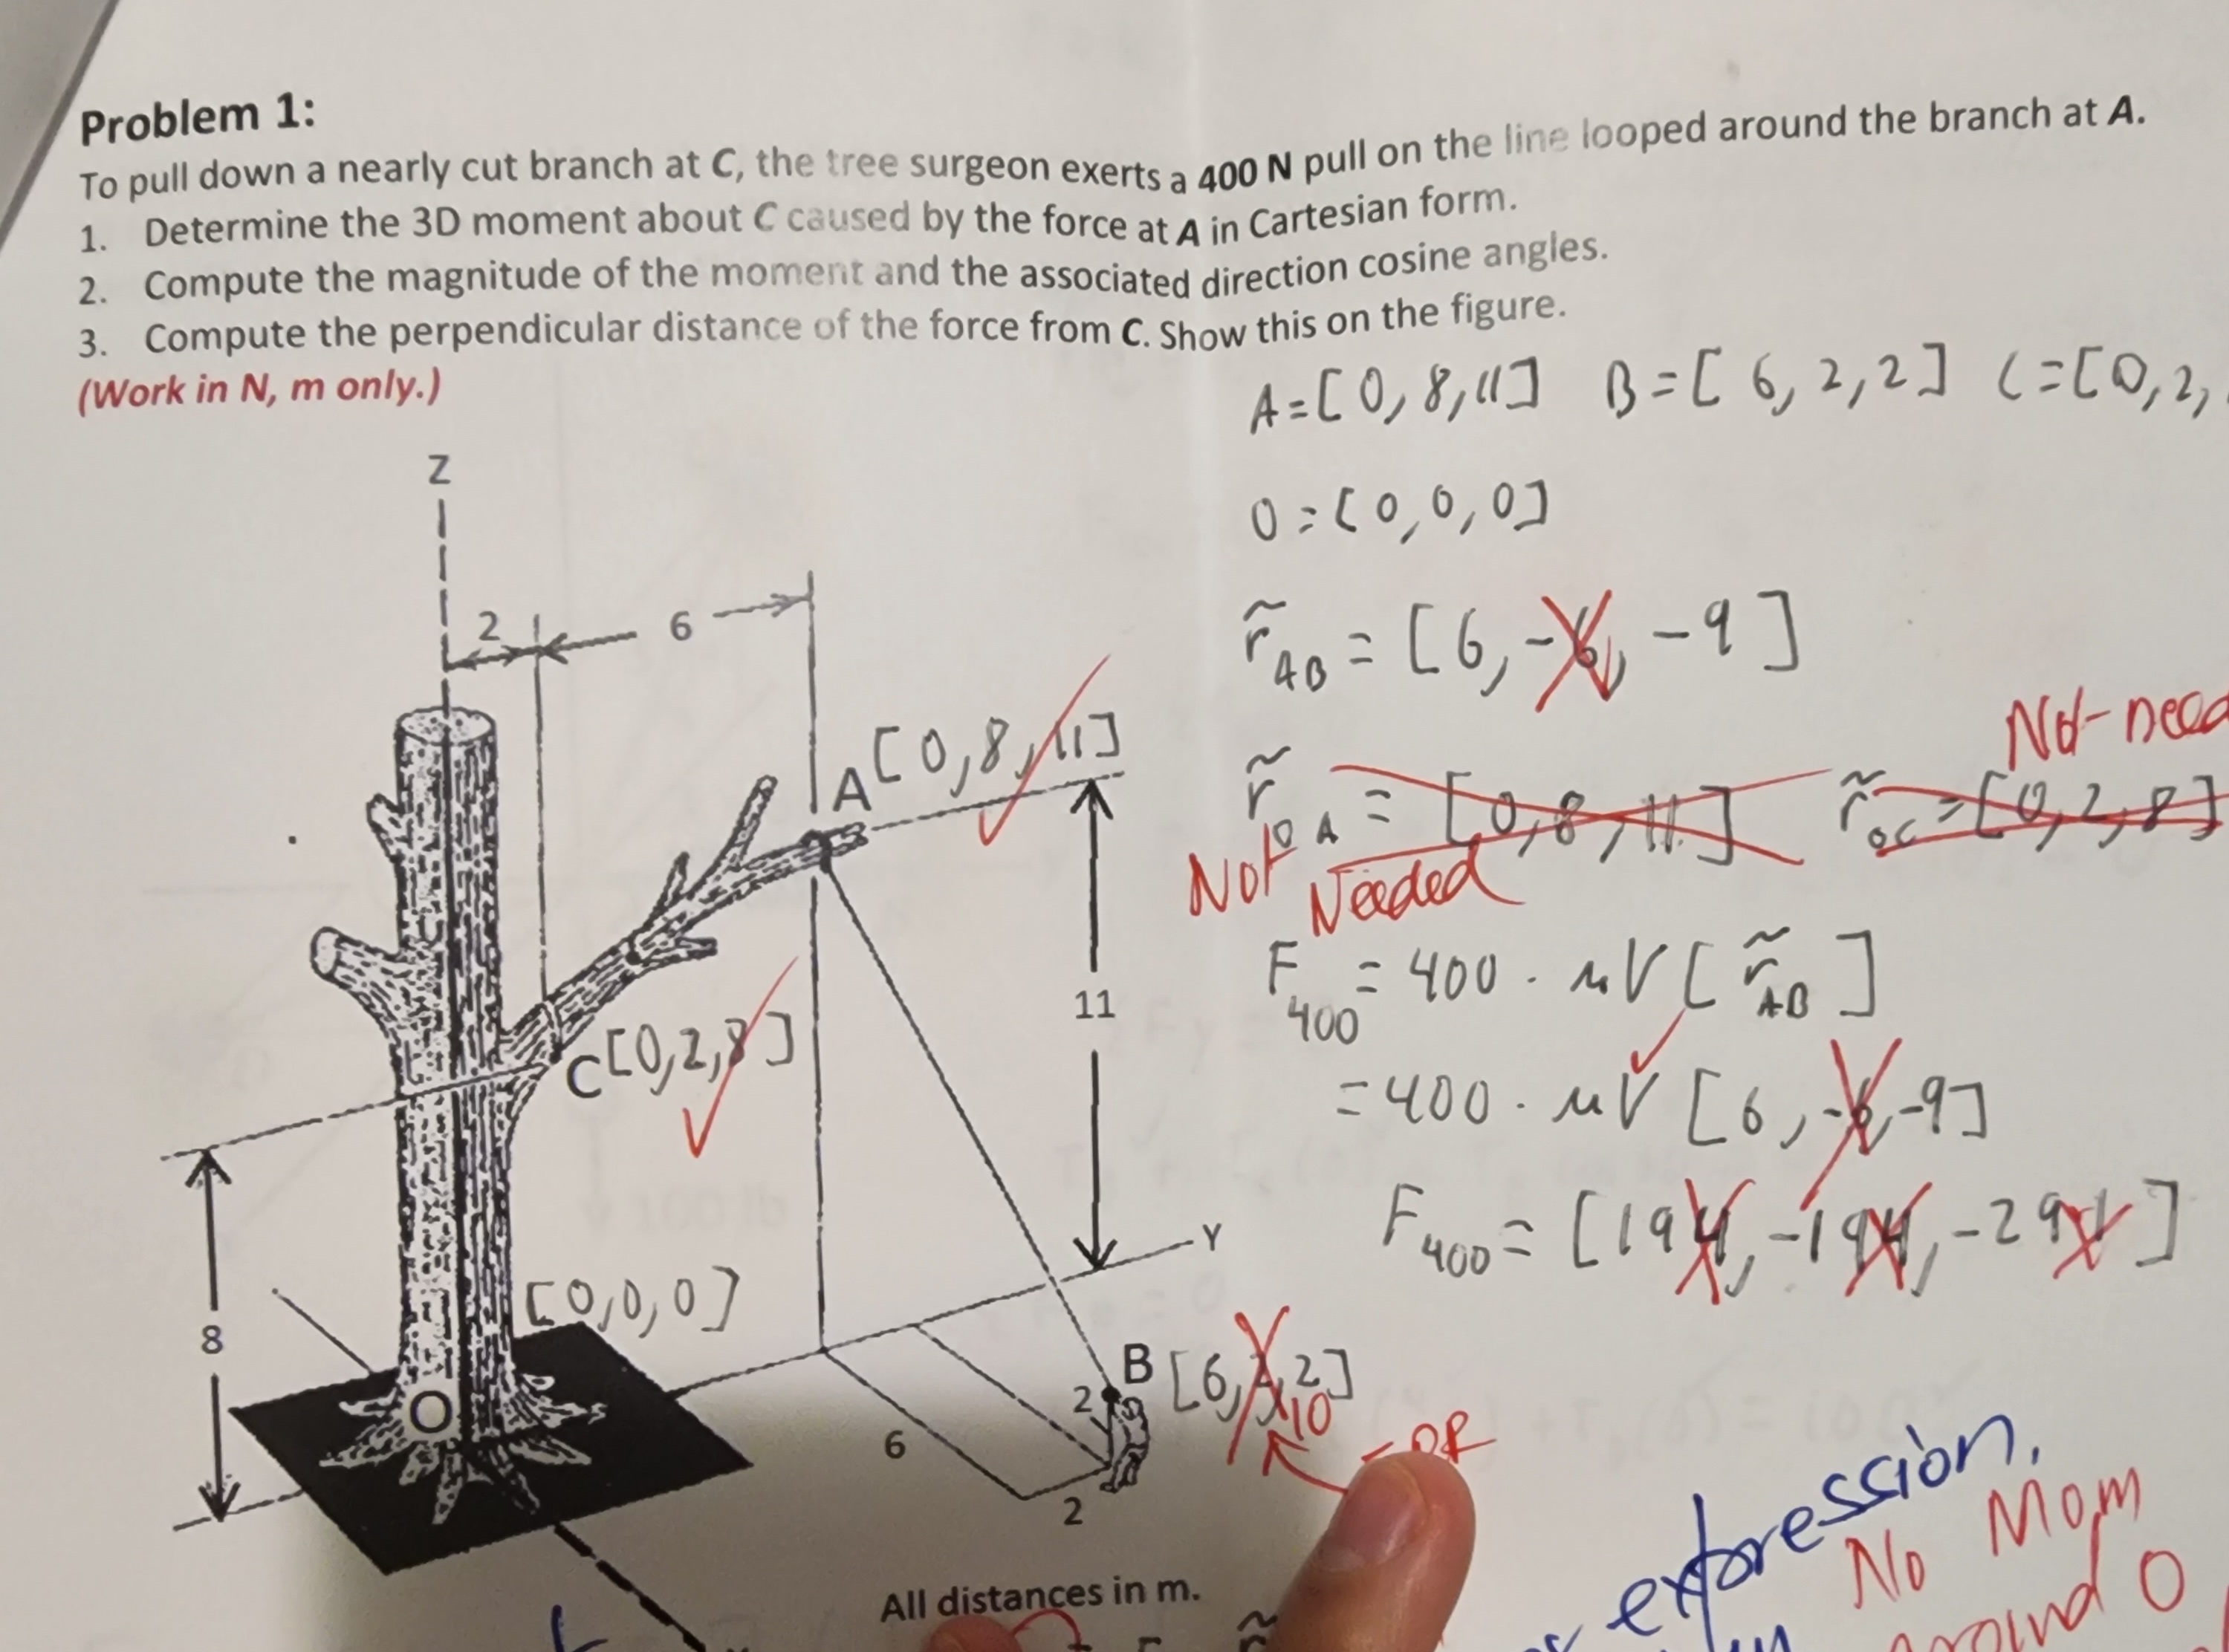 Problem 1:
To pull down a nearly cut branch at C, the tree surgeon exerts a 400 N pull on the line looped around the branch at A.
1. Determine the 3D moment about C caused by the force at A in Cartesian form.
2. Compute the magnitude of the moment and the associated direction cosine angles.
3. Compute the perpendicular distance of the force from C. Show this on the figure.
(Work in N, m only.)
A=[0,8,11] B=[6,2,2] C=[0,2,
O=[0,0,0]
r̃AB = [6,-6,-9]
Not need
r̃OA = [0,8,11] r̃OC=[0,2,8]
Not Needed
F400 = 400 · uV[r̃AB]
=400 · uV[6,-6,-9]
F400 = [194,-194,-291]
Z
2
6
A[0,8,11]
C[0,2,8]
11
8
[0,0,0]
O
Y
B[6,2,2]
10
2
6
2
All distances in m.
expression.
No Mom
around O